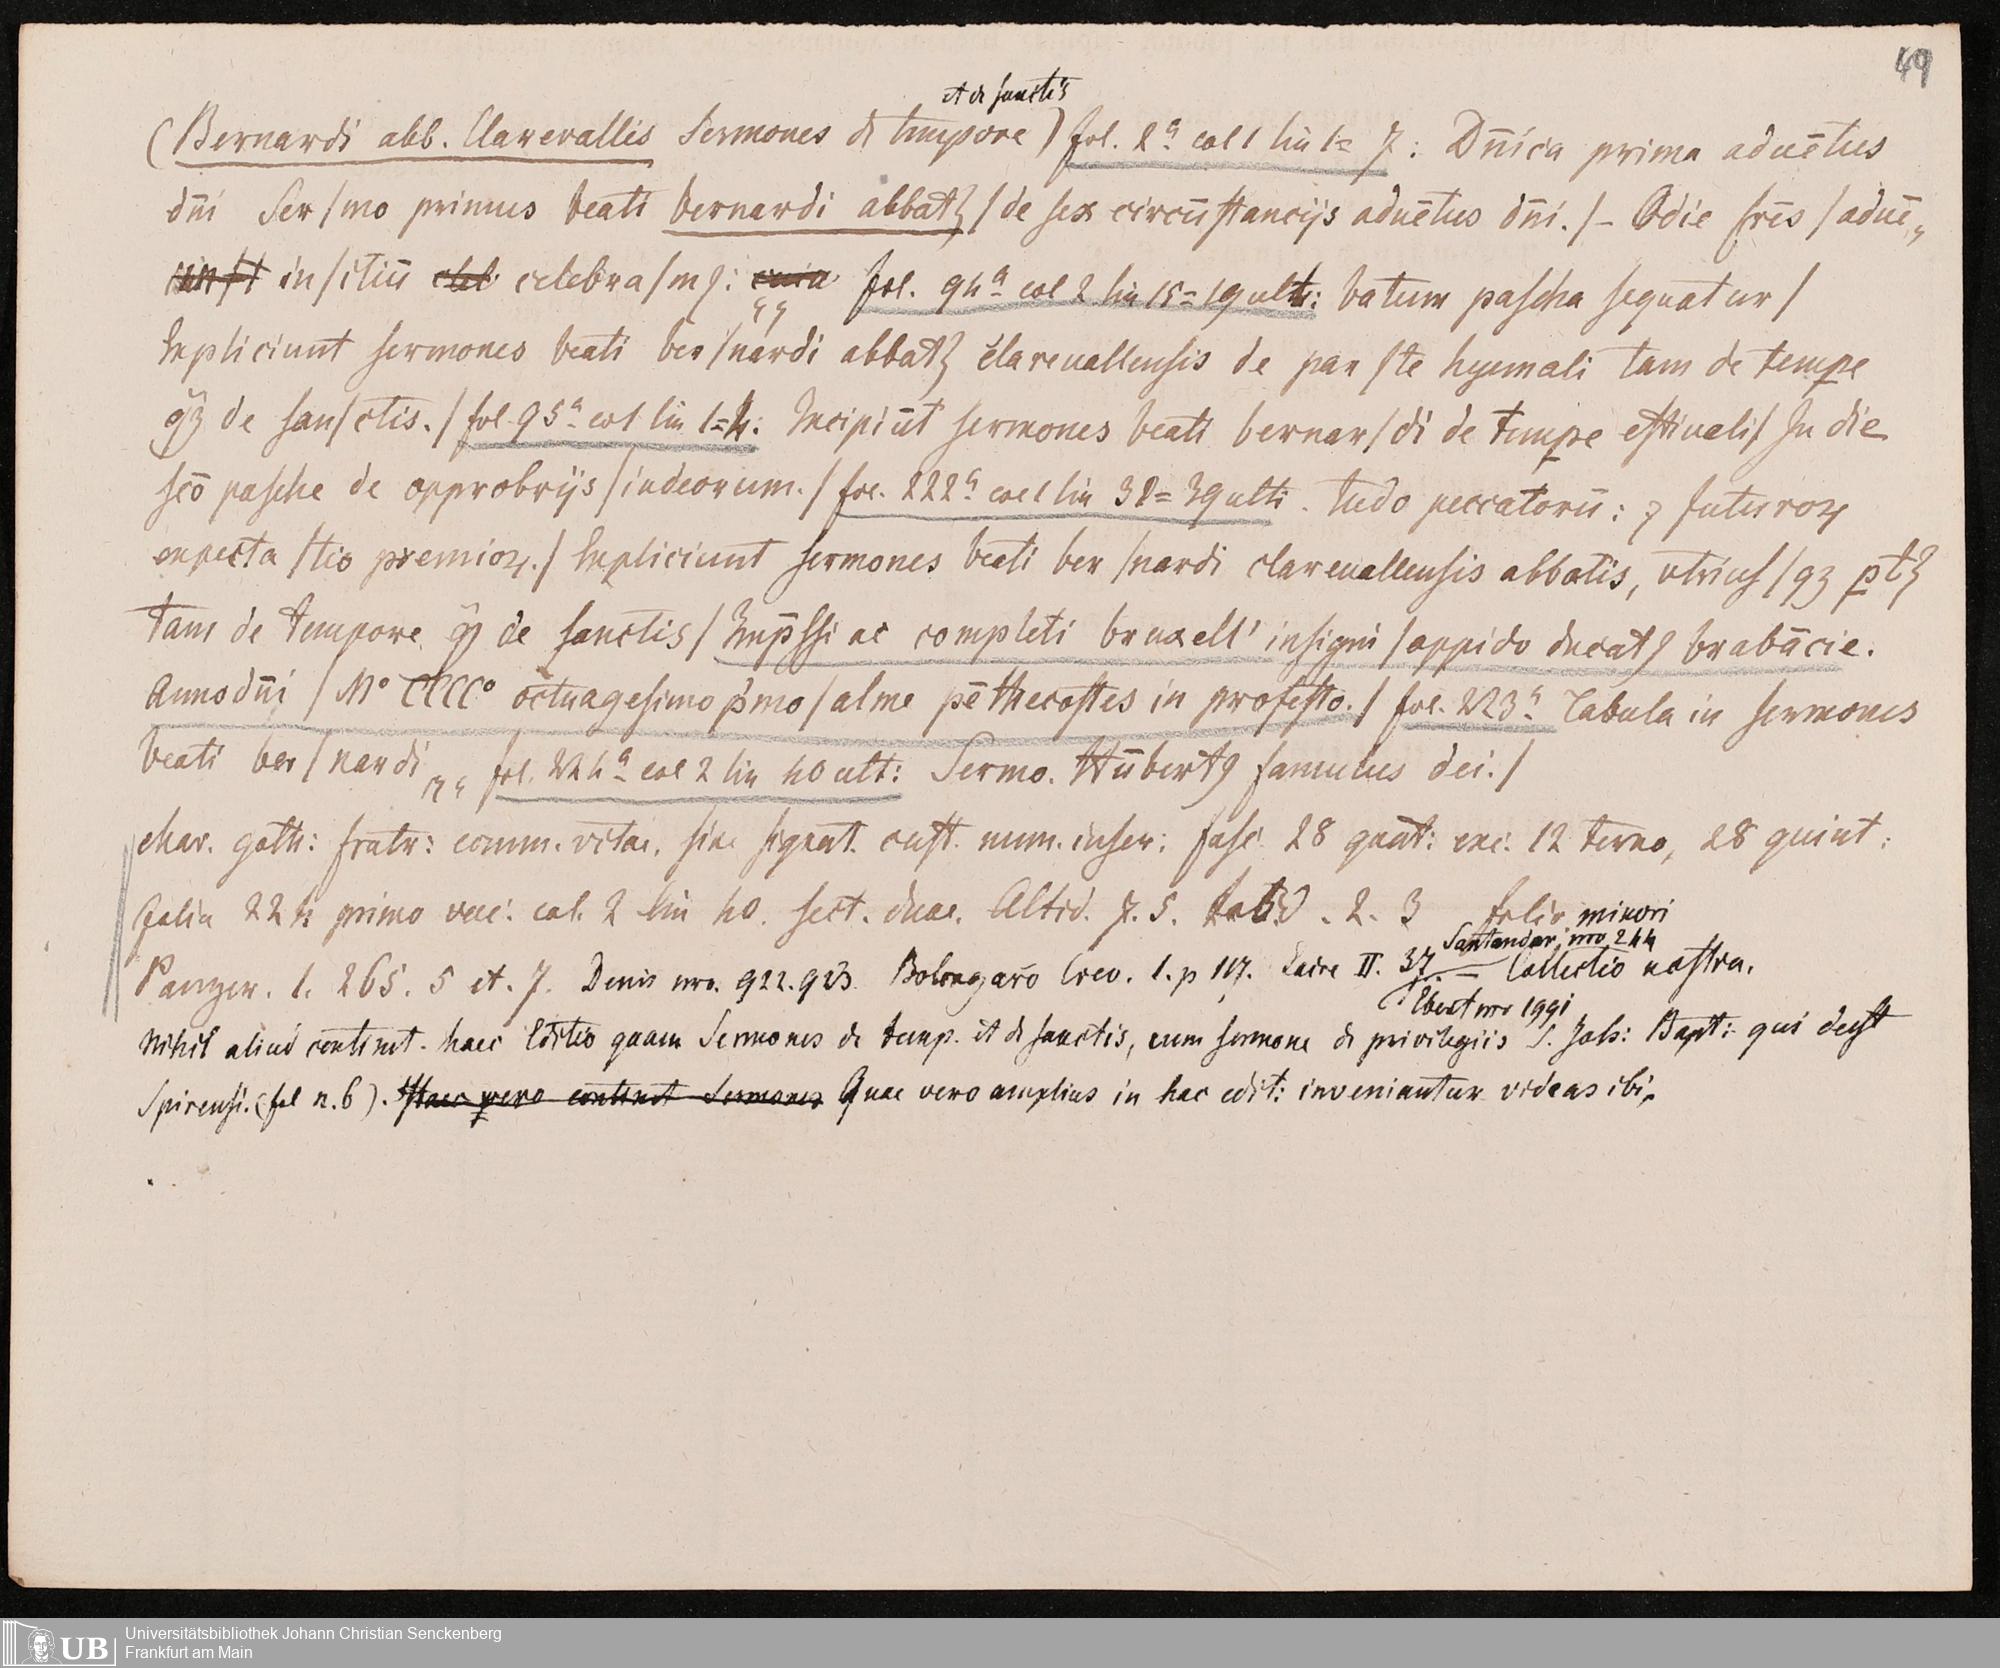 49
et de sanctis
(Bernardi abb. Clarevallis Sermones de tempore) fol. 2ª col 1 lin 1= 7: Dn̄ica prima aduētus
dn̄i Ser/mo primus beati bernardi abbatꝫ/ de sex circūstancijs aduētus dn̄i./– Odie frēs /aduē„
in/ctiū celebra/mꝰ: fol. 94ª col 2 lin 15=19 ult: batum pascha sequatur/
Expliciunt sermones beati ber/nardi abbatꝫ clareuallensis de par/te hyemali tam de tempe
qꝫ de san/ctis./ fol. 95ª col lin 1=4: Incipiūt sermones beati bernar/di de tempe estiuali/ In die
scō pasche de opprobrijs/iudeorum./ fol. 222ª col 1 lin 32=39 ulti. tudo peccatorū: ⁊ futuroꝝ
expecta/tio premioꝝ./ Expliciunt sermones beati ber/nardi clareuallensis abbatis, vtrius/qꝫ ptꝫ
tam de tempore qꝫ de sanctis/ Imp̄ssi ac completi bruxell' insigni/oppido ducatꝰ brabācie.
Anno dn̄i /M° CCCC° octuagesimo p̄mo/alme pēthecostes in profesto./ fol. 223ª Tabula in sermones
beati ber/nardi „ fol. 224ª col 2 lin 40 ult: Sermo. Hūbertꝰ famulus dei./
char. goth: fratr: comm. vitae, sine signat. cust. num. inser: fasc. 28 quat: exc. 12 terno, 28 quint:
folia 224 primo vac: col. 2 lin 40. sect. duae. Altid. 7. 5. 2. 3 folio minori
Santandar, nro 244
Panzer. 1. 265. 5 et. 7. Denis nro. 922. 923. Bolongaro Crev. 1. p 117. Laire II. 37. – Collectio nostra.
Ebert nro 1991
Nihil aliud continet haec Editio quam Sermones de temp. et de sanctis, cum sermone de privilegiis S. Joh: Bapt: qui deest
Spirensi. (fol n. 6). Haec vero continet Sermones Quae vero amplius in hac edit: inveniantur videas ibi.
UB Universitätsbibliothek Johann Christian Senckenberg
Frankfurt am Main